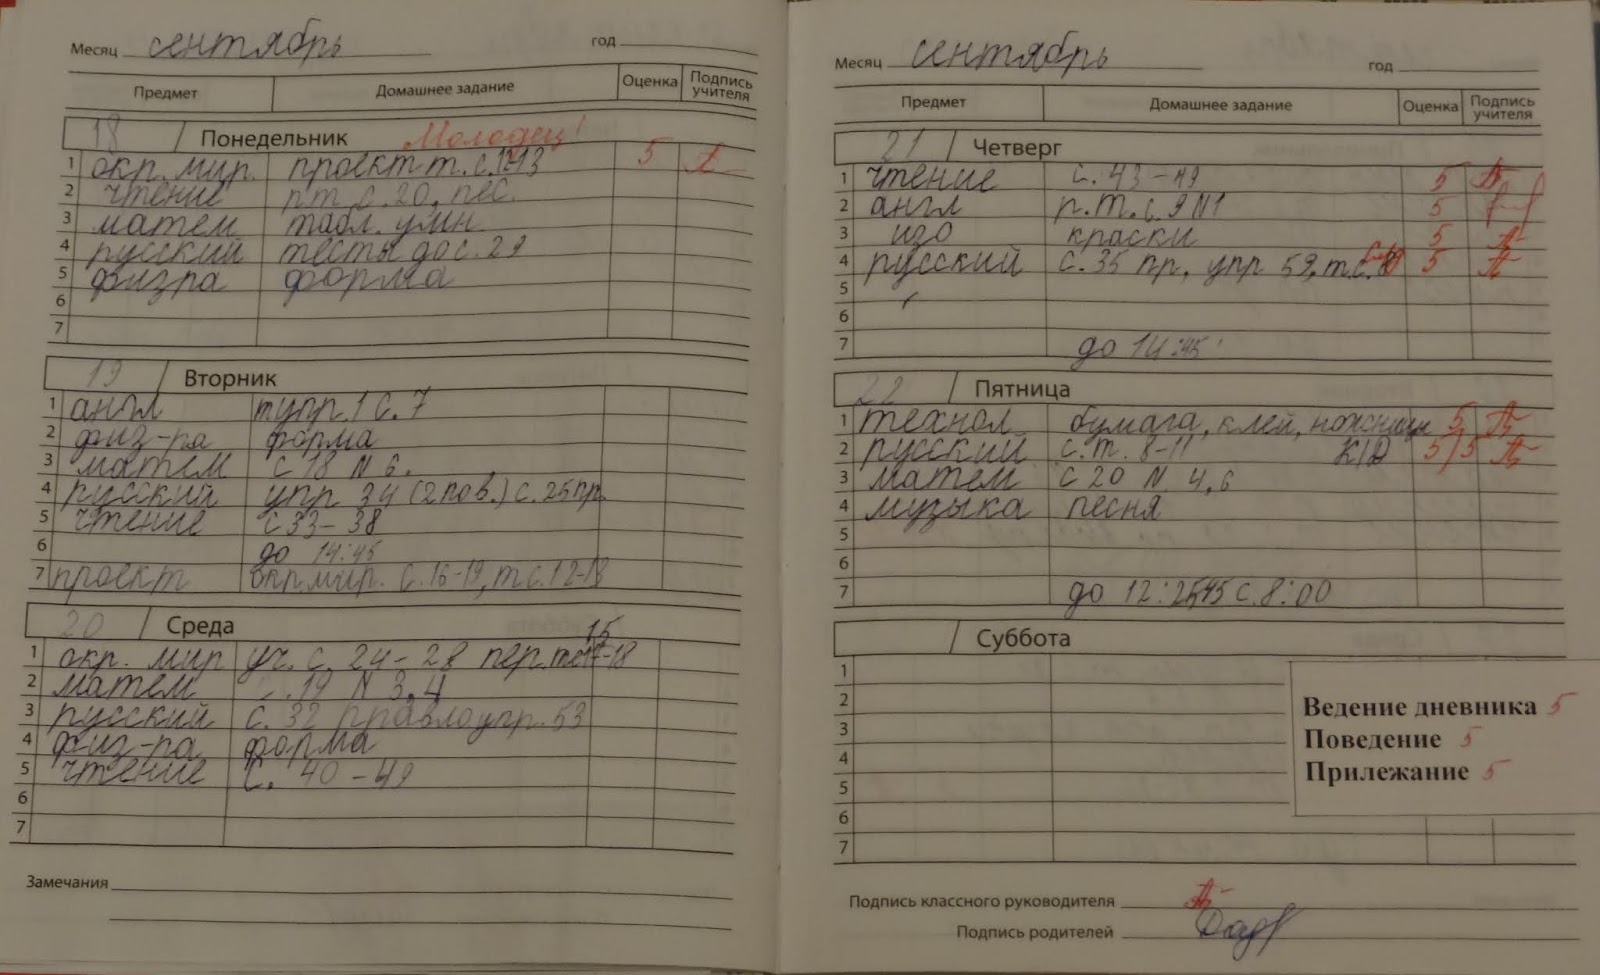 Месяц сентябрь год
Предмет Домашнее задание Оценка Подпись учителя
18 Понедельник Молодец!
1 окр. мир. проект т. с. 12-13 5
2 чтение рт с. 20, пес.
3 матем табл. умн.
4 русский тесты до с. 29
5 физра форма
6
7
19 Вторник
1 англ т упр. 1 с. 7
2 физ-ра форма
3 матем с 18 N 6.
4 русский упр 34 (2 пов.) с. 25 пр.
5 чтение с 33-38
6 до 14:45
7 проект окр.мир. с. 16-19, т с. 12-13
20 Среда
1 окр. мир уч. с. 24-28 пер. 15 -18
2 матем .19 N 3,4
3 русский с. 32 правло упр. 53
4 физ-ра форма
5 чтение с. 40-49
6
7
Замечания
Месяц сентябрь год
Предмет Домашнее задание Оценка Подпись учителя
21 Четверг
1 чтение с. 43-49 5
2 англ р.т. с. 9 N1 5
3 изо краски 5
4 русский с. 35 пр, упр 59, т.с. 5
5
6
7 до 14:45
22 Пятница
1 технол бумага, клей, ножницы 5
2 русский с. т. 8-11 К/Д 5/5
3 матем с 20 N 4,6
4 музыка песня
5
6
7 до 12:25, с. 8:00
Суббота
1
2
3
4
5
6
7
Ведение дневника 5
Поведение 5
Прилежание 5
Подпись классного руководителя
Подпись родителей